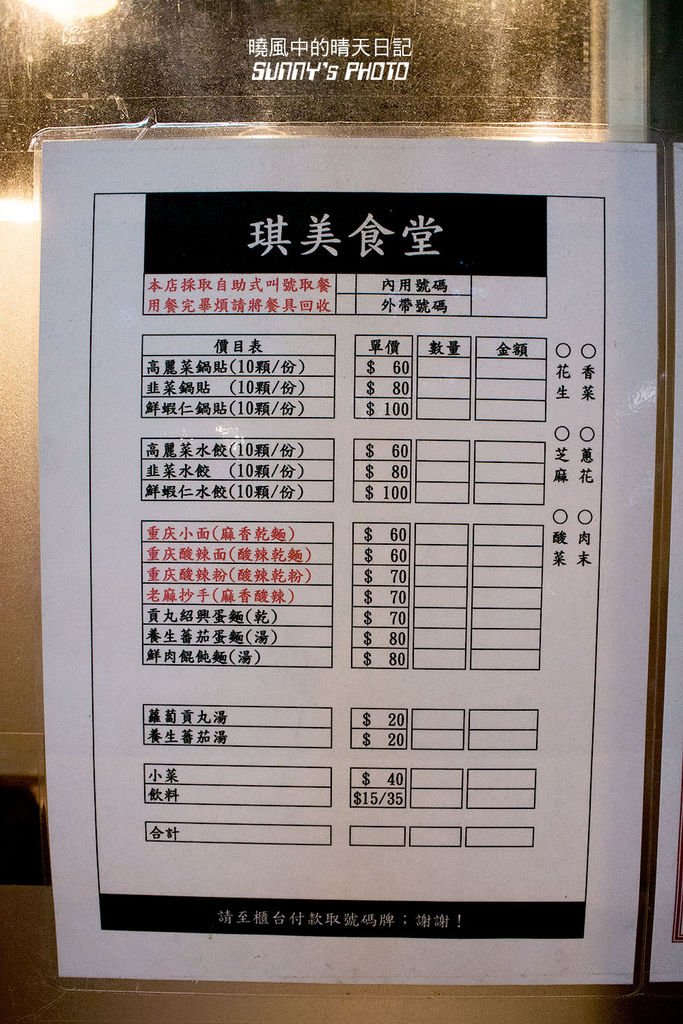 曉風中的晴天日記
SUNNY'S PHOTO
琪美食堂
本店採取自助式叫號取餐 內用號碼
用餐完畢煩請將餐具回收 外帶號碼
價目表 單價 數量 金額
高麗菜鍋貼(10顆/份) $ 60
韭菜鍋貼 (10顆/份) $ 80
鮮蝦仁鍋貼(10顆/份) $ 100
高麗菜水餃(10顆/份) $ 60
韭菜水餃 (10顆/份) $ 80
鮮蝦仁水餃(10顆/份) $ 100
重庆小面(麻香乾麵) $ 60
重庆酸辣面(酸辣乾麵) $ 60
重庆酸辣粉(酸辣乾粉) $ 70
老麻抄手(麻香酸辣) $ 70
貢丸紹興蛋麵(乾) $ 70
養生蕃茄蛋麵(湯) $ 80
鮮肉餛飩麵(湯) $ 80
蘿蔔貢丸湯 $ 20
養生蕃茄湯 $ 20
小菜 $ 40
飲料 $15/35
合計
○香菜
○花生
○蔥花
○芝麻
○肉末
○酸菜
請至櫃台付款取號碼牌；謝謝！